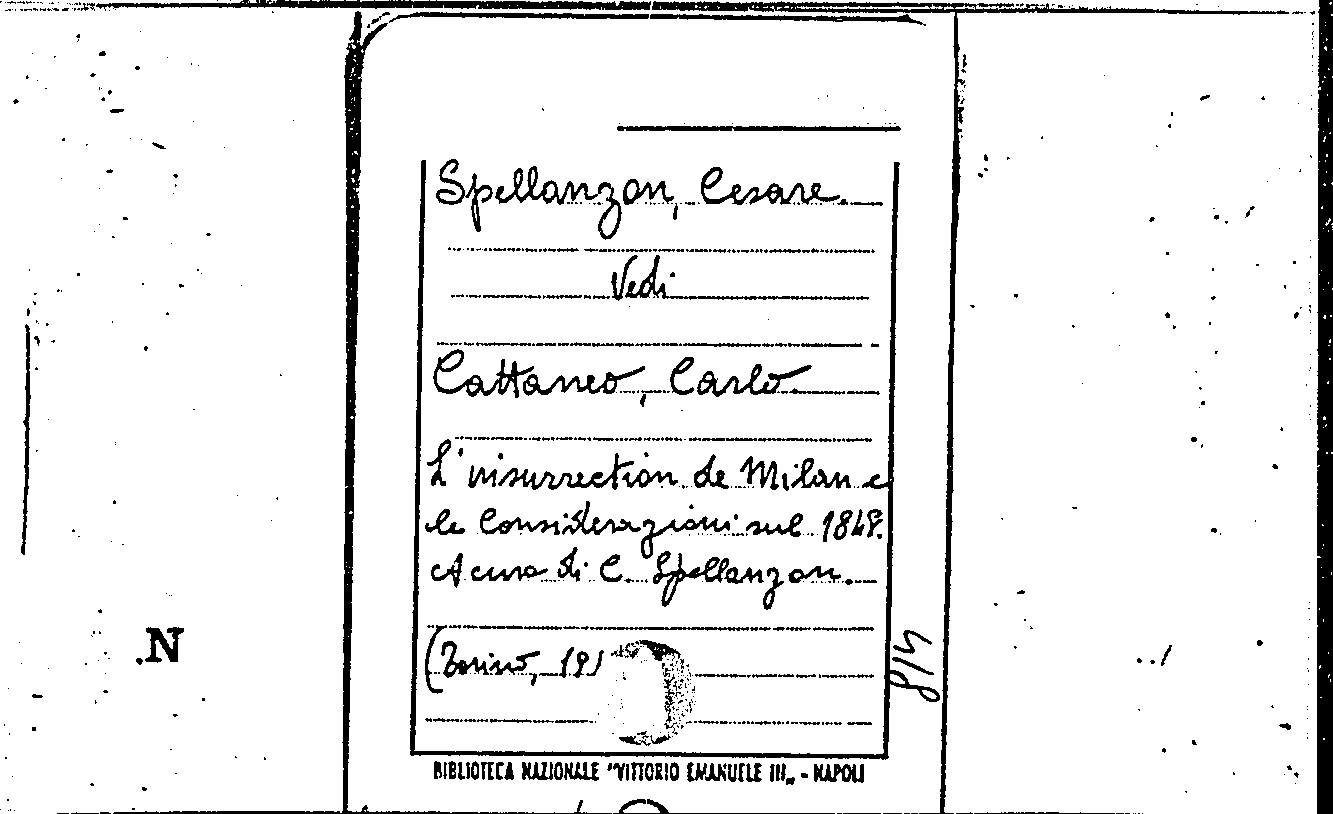 Spellanzon, Cesare.
Vedi
Cattaneo, Carlo.
L'insurrection de Milan e
le Considerazioni sul 1848.
A cura di C. Spellanzon.
(Torino, 19
814
.N
BIBLIOTECA NAZIONALE "VITTORIO EMANUELE III„ - NAPOLI